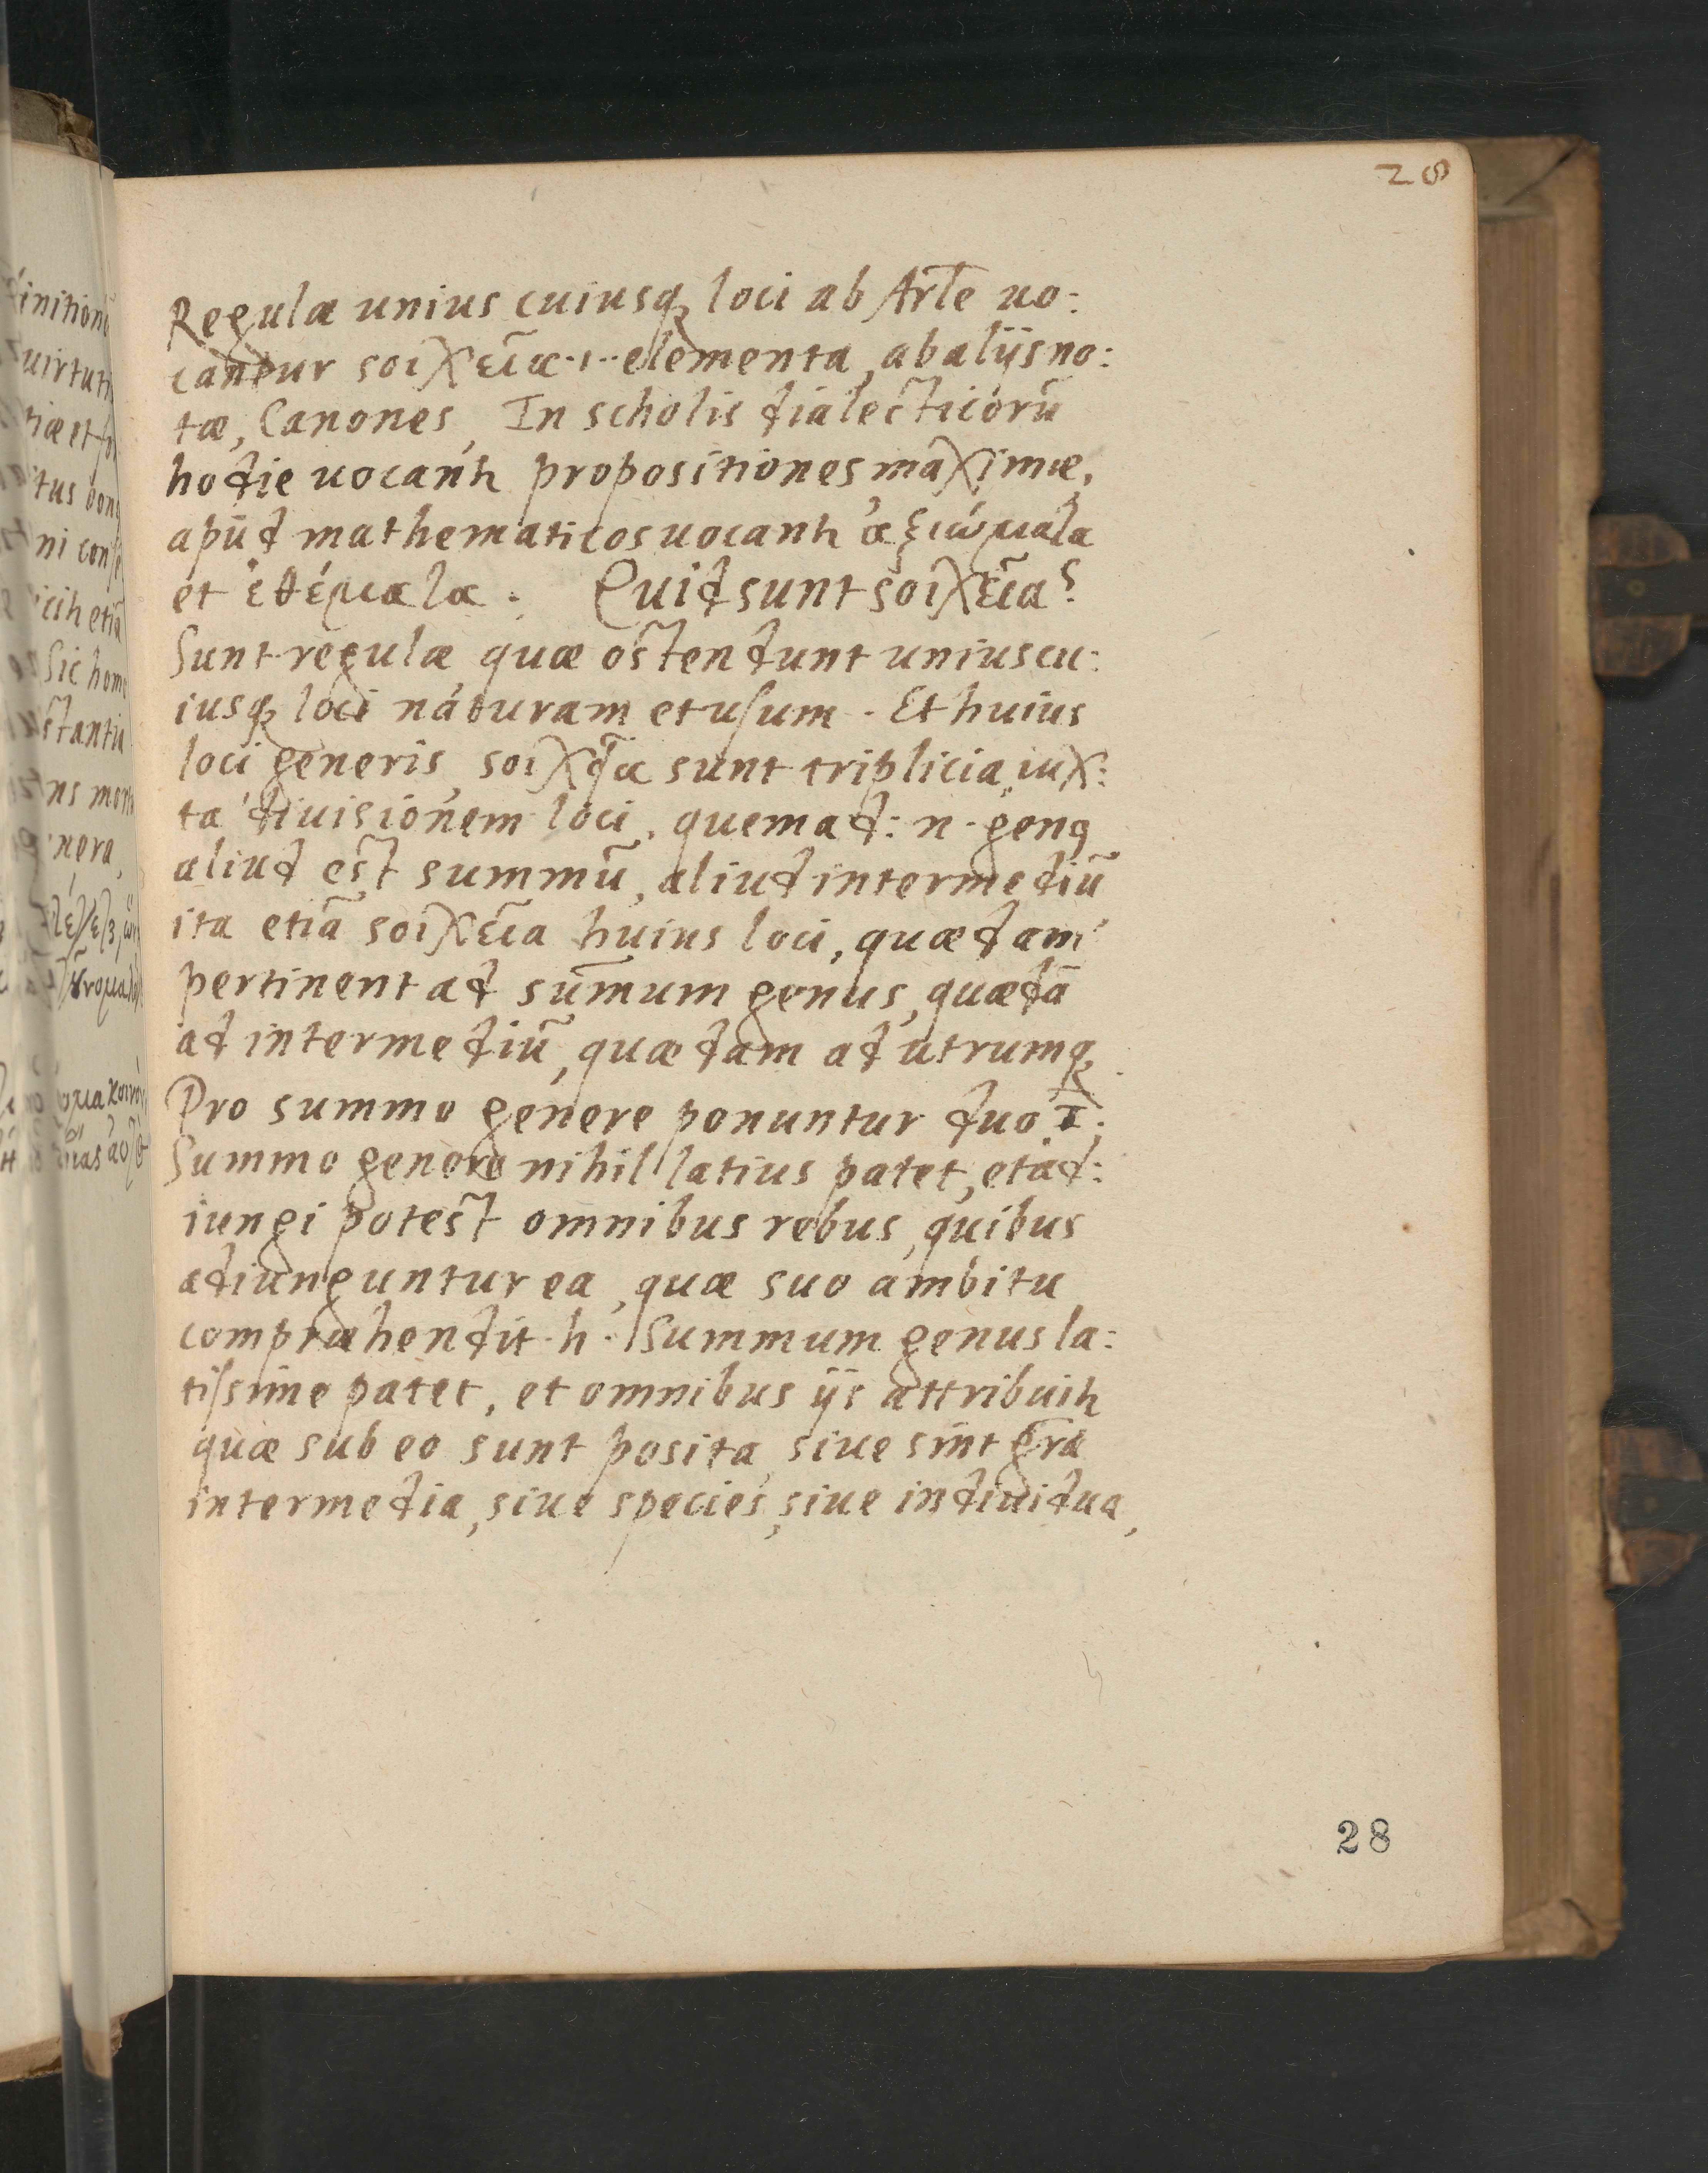 28
Regulæ unius cuiusq; loci ab Arle uo:
cantur soiχεῖα .i. elementa, ab alijs no:
tæ, Canones, In scholis dialecticorū
hodie uocantr propositiones maximæ,
apud mathematicos uocantr ἀξιώμαλα
et ἐθέμαλα. Quid sunt soiχεῖα?
Sunt regulæ quæ ostendunt uniuscu:
iusq; loci naturam et usum. Et huius
loci generis, soiχεῖα sunt triplicia, iux:
ta diuisionem loci. quemad: n. genq
aliud est summū, aliud intermediū
ita etiā soiχεῖα huius loci, quædam
pertinent ad sum̄um genus, quædā
ad intermediū, quædam ad utrumq;
Pro summo genere ponuntur duo. I;
Summo genere nihil latius patet, et ad:
iungi potest omnibus rebus, quibus
adiunguntur ea, quæ suo ambitu
compræhendit. h. Summum genus la:
tissime patet, et omnibus ijs attribuitr
quæ sub eo sunt posita, siue sint gr̄a
intermedia, siue species, siue indiuidua,
28